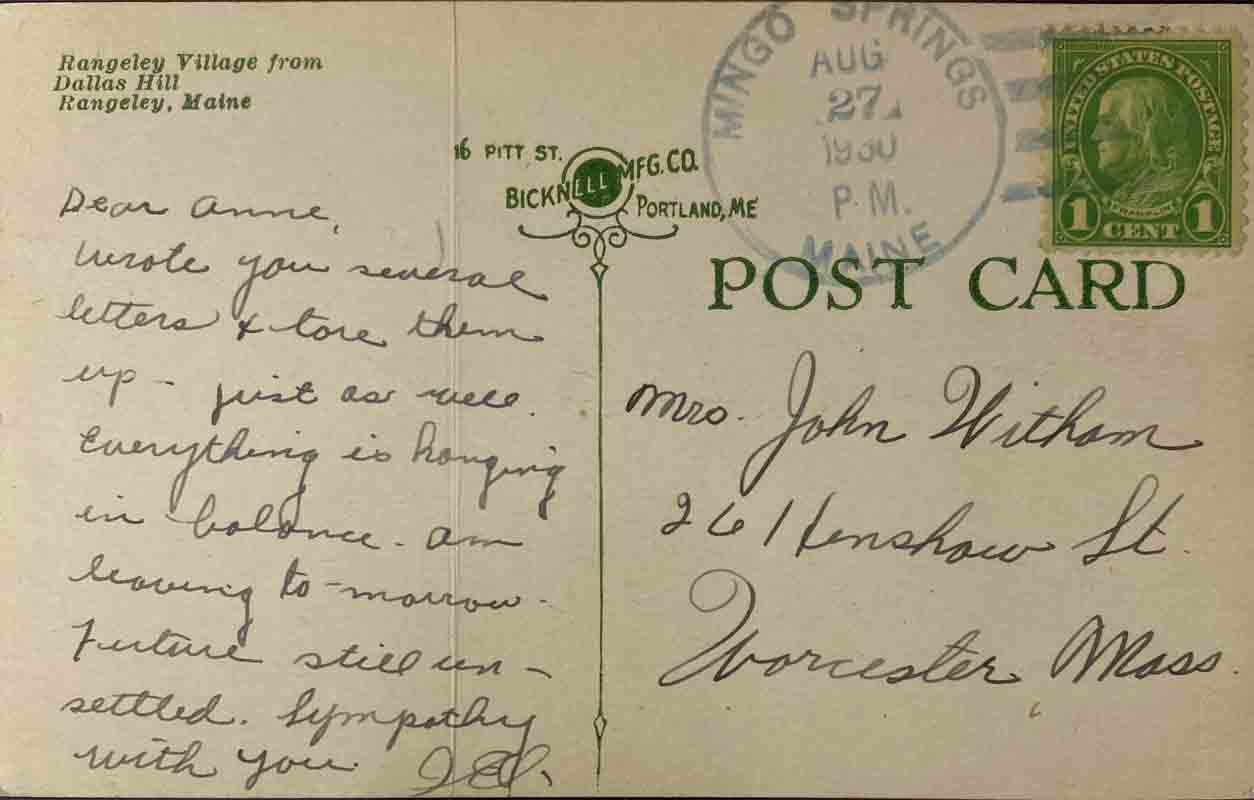 Rangeley Village from
Dallas Hill
Rangeley, Maine
MINGO SPRINGS
AUG
27
1930
P.M.
MAINE
UNITED STATES POSTAGE
FRANKLIN
1 CENT 1
16 PITT ST.
BICKNELL MFG. CO.
PORTLAND, ME
POST CARD
Dear Anne,
Wrote you several
letters & tore them
up - just as well.
Everything is hanging
in balance - am
leaving to-morrow -
Future still un-
settled. Sympathy
with you.
Mrs. John Witham
26 Henshaw St.
Worcester Mass.